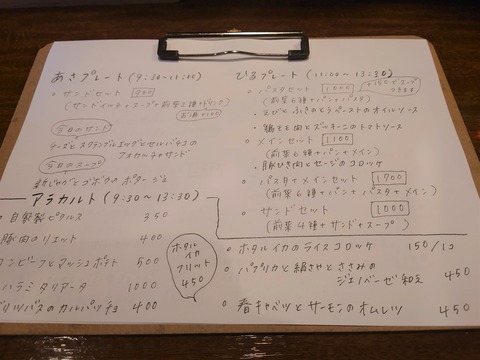 あさプレート (9:30〜11:00)
○ サンドセット 900
(サンドイッチ+スープ+前菜2種
今日のサンド
チーズとスクランブルエッグとセルバチコの
フォカッチャサンド
今日のスープ
じゃがとゴボウのポタージュ
アラカルト (9:30〜13:30)
○ 自家製ピクルス 350
豚肉のリエット 400
コンビーフとマッシュポテト 500
ハラミタリアータ 1000
ブリッツバスのカルパッチョ 400
ホタル
イカ
フリット
450
ひるプレート (11:00〜13:30)
○ パスタセット 1000
+150でスープ
できます
(前菜6種+パン+パスタ)
・えびとふきのとうペーストのオイルソース
・鶏もも肉とズッキーニのトマトソース
○ メインセット 1100
(前菜6種+パン+メイン)
・豚ひき肉とセージのコロッケ
○ パスタ+メインセット 1700
(前菜6種+パン+パスタ+メイン)
○ サンドセット 1000
(前菜4種+サンド+スープ)
○ ホタルイカのライスコロッケ 150/1コ
○ パプリカと絹さやとささみの
ジェノベーゼ和え 450
○ 春キャベツとサーモンのオムレツ 450